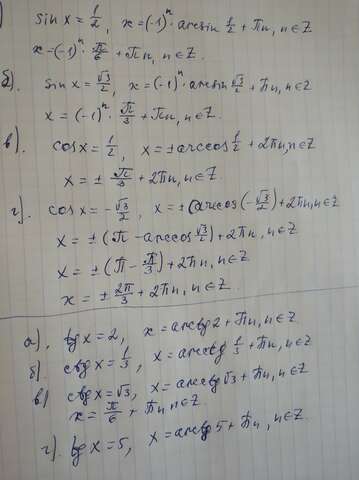 ) sin x = 1/2, x = (-1)ⁿ · arcsin 1/2 + πn, n ∈ Z
x = (-1)ⁿ · π/6 + πn, n ∈ Z.
б). sin x = √3/2, x = (-1)ⁿ · arcsin √3/2 + πn, n ∈ Z
x = (-1)ⁿ · π/3 + πn, n ∈ Z.
в). cos x = 1/2, x = ± arccos 1/2 + 2πn, n ∈ Z
x = ± π/3 + 2πn, n ∈ Z.
г). cos x = -√3/2, x = ± (arccos (-√3/2) + 2πn, n ∈ Z
x = ± (π - arccos √3/2) + 2πn, n ∈ Z
x = ± (π - π/3) + 2πn, n ∈ Z
x = ± 2π/3 + 2πn, n ∈ Z
а). tg x = 2, x = arctg 2 + πn, n ∈ Z.
б). ctg x = 1/3, x = arcctg 1/3 + πn, n ∈ Z.
в) ctg x = √3, x = arcctg √3 + πn, n ∈ Z
x = π/6 + πn, n ∈ Z.
г). tg x = 5, x = arctg 5 + πn, n ∈ Z.